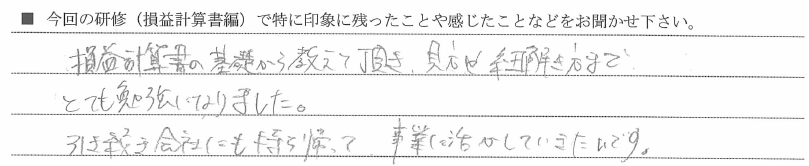 ■ 今回の研修（損益計算書編）で特に印象に残ったことや感じたことなどをお聞かせ下さい。
損益計算書の基礎から教えて頂き、見方や紐解き方まで
とても勉強になりました。
引き続き会社にも持ち帰って 事業に活かしていきたいです。